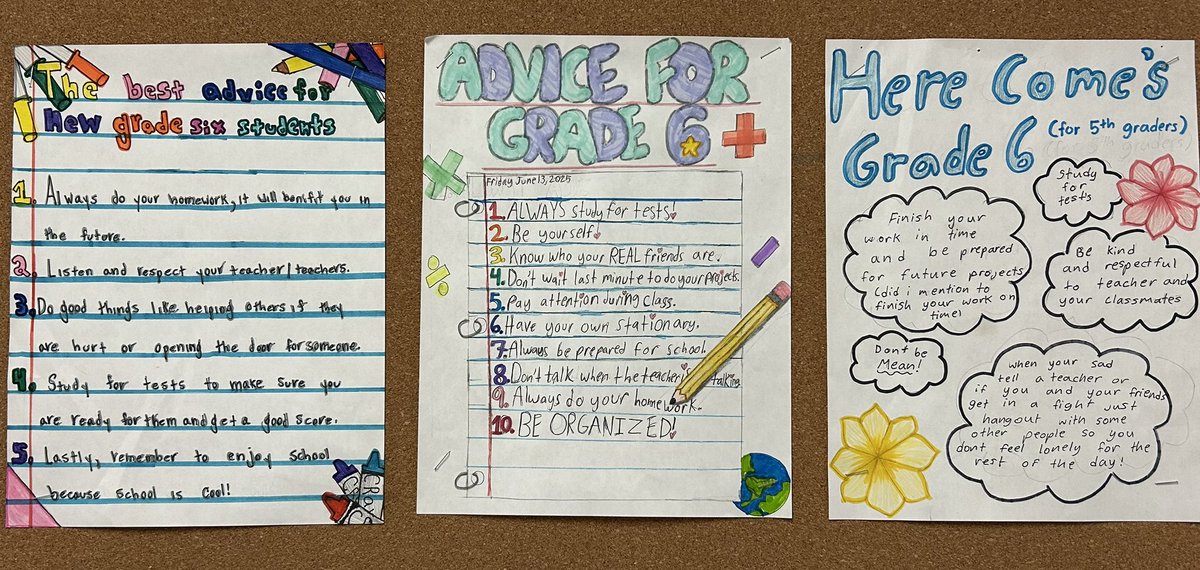 The best advice for
new grade six students
1. Always do your homework, it will benifit you in
the future.
2. Listen and respect your teacher/teachers.
3. Do good things like helping others if they
are hurt or opening the door for someone.
4. Study for tests to make sure you
are ready for them and get a good score.
5. Lastly, remember to enjoy school
because school is cool!
ADVICE FOR
GRADE 6
Friday June 13, 2025
1. ALWAYS study for tests!
2. Be yourself!
3. Know who your REAL friends are.
4. Don't wait last minute to do your projects.
5. Pay attention during class.
6. Have your own stationary.
7. Always be prepared for school.
8. Don't talk when the teacher talking
9. Always do your homework.
10. BE ORGANIZED!
Here Come's
Grade 6 (for 5th graders)
Study
for
tests
Finish your
work in time
and be prepared
for future projects
(did i mention to
finish your work on
time)
Be kind
and respectful
to teacher and
your classmates
Dont be
Mean!
when your sad
tell a teacher or
if you and your friends
get in a fight just
hangout with some
other people so you
dont feel lonely for the
rest of the day!